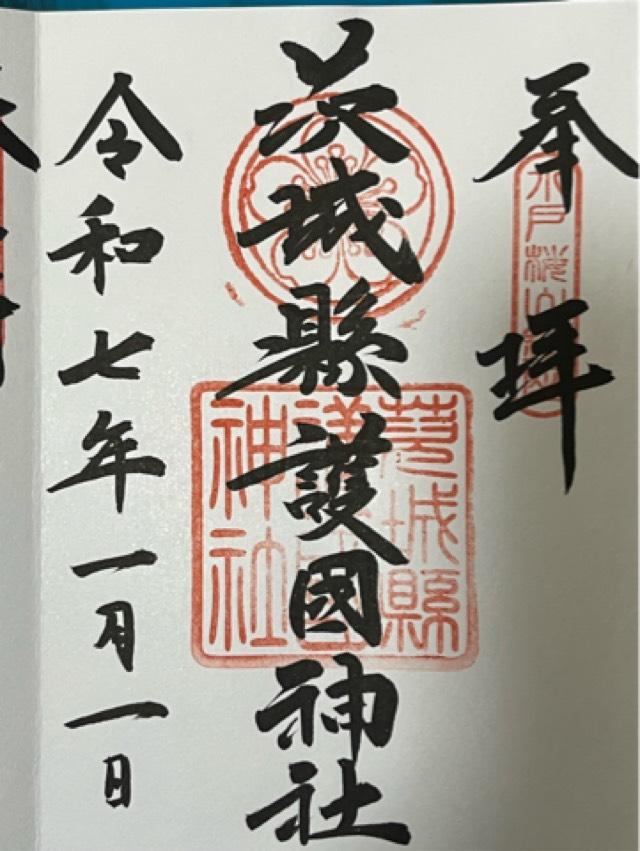 奉拝
水戸桜山鎮
茨城縣護國神社
茨城縣
護國
神社
令和七年一月一日